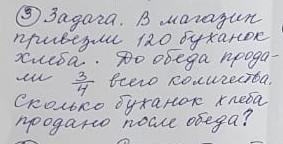 ③ Задача. В магазин
привезли 120 буханок
хлеба. До обеда прода-
ли 3/4 всего количества.
Сколько буханок хлеба
продано после обеда?